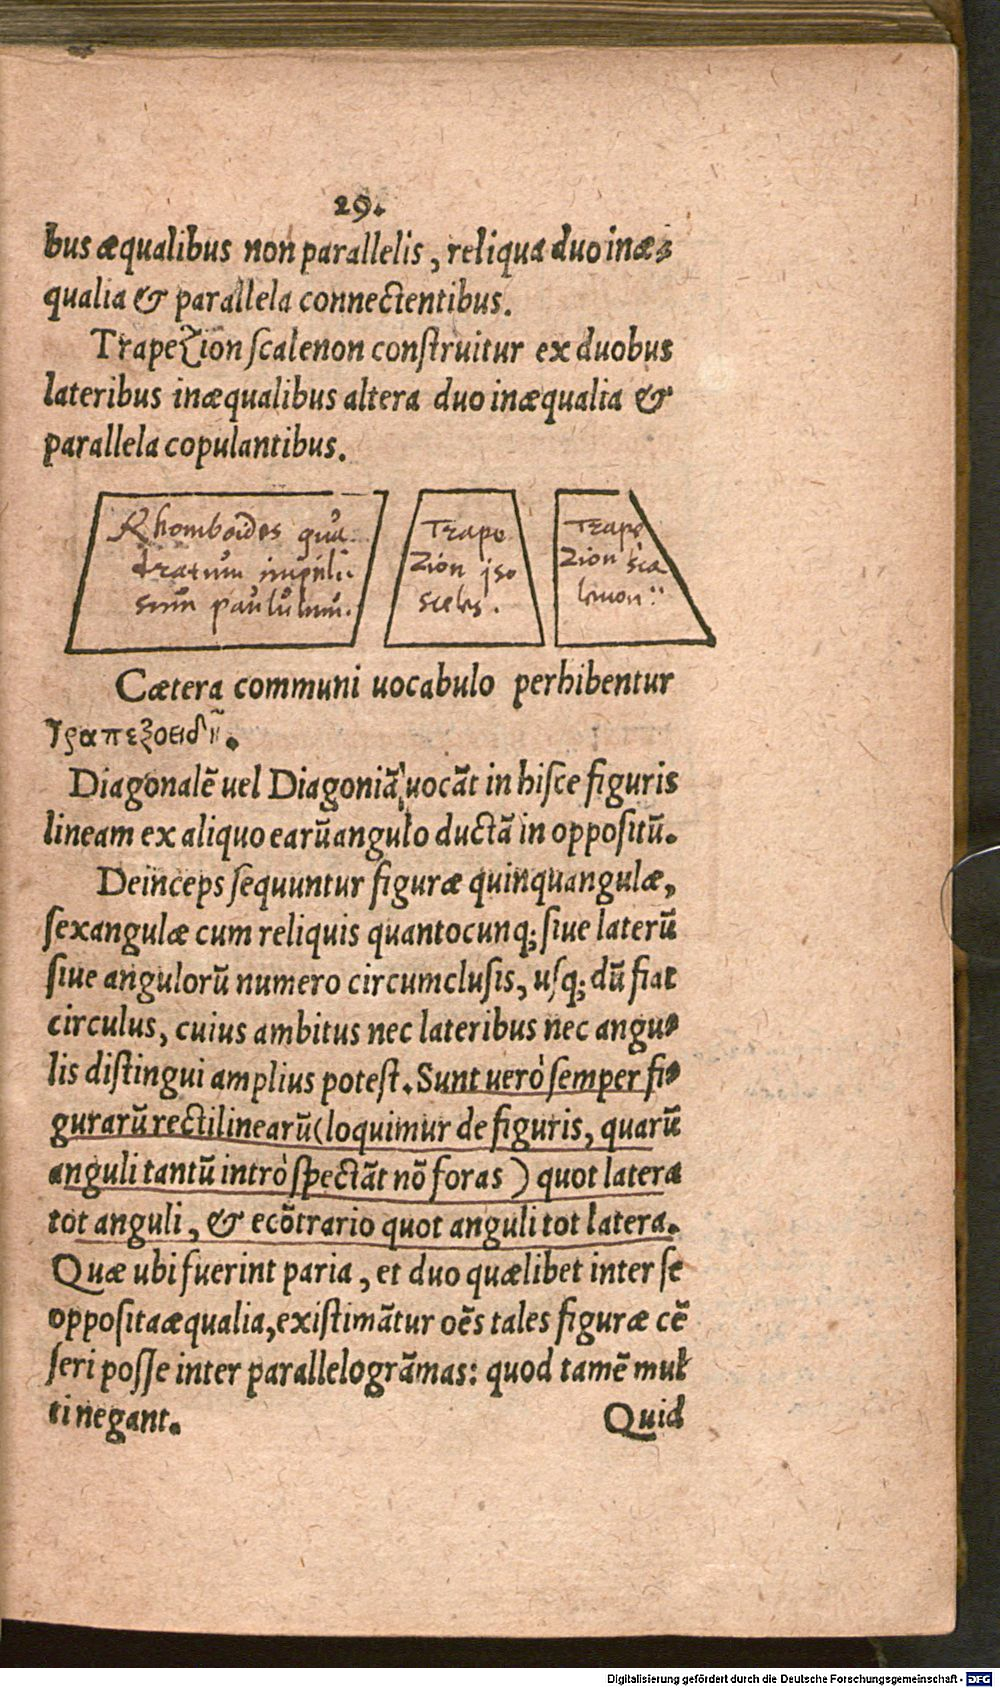 29.
bus æqualibus non parallelis, reliqua duo inæ-
qualia & parallela connectentibus.
Trapezion scalenon construitur ex duobus
lateribus inæqualibus altera duo inæqualia &
parallela copulantibus.
Rhomboides qua
dratum
Trape
zion iso
sceles.
Trape
zion sca
lenon
Cætera communi uocabulo perhibentur
Diagonalē uel Diagoniā uocāt in hisce figuris
lineam ex aliquo earū angulo ductā in oppositū.
Deinceps sequuntur figuræ quinquangulæ,
sexangulæ cum reliquis quantocunq; siue laterū
siue angulorū numero circumclusis, usq; dū fiat
circulus, cuius ambitus nec lateribus nec angu-
lis distingui amplius potest. Sunt uerò semper fi-
gurarū rectilinearū (loquimur de figuris, quarū
anguli tantū intrò spectāt nō foras) quot latera
tot anguli, & ecōtrario quot anguli tot latera.
Quæ ubi fuerint paria, et duo quælibet inter se
opposita æqualia, existimātur oēs tales figuræ cē
seri posse inter parallelogrāmas: quod tamē mul
ti negant.
Quid
Digitalisierung gefördert durch die Deutsche Forschungsgemeinschaft - DFG